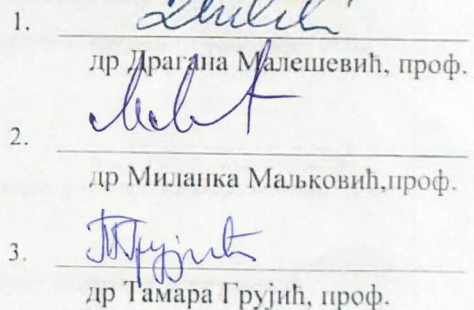 1.
др Драгана Малешевић, проф.
2.
др Миланка Маљковић,проф.
3.
др Тамара Грујић, проф.